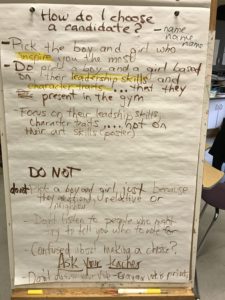 How do I choose
a candidate?
- name
name
name
- Pick the boy and girl who
inspire you the most
- Do pick a boy and a girl based
on their leadership skills and
character traits .... that they
present in the gym
Focus on their leadship skills,
character traits .... not on
their art skills (poster)
DO NOT
do not pick a boy and girl, just because
they are friend, or relative or
- Don't listen to people who want
try to tell you who to vote for
- Confused about making a choise?
Ask your teacher
- Don't